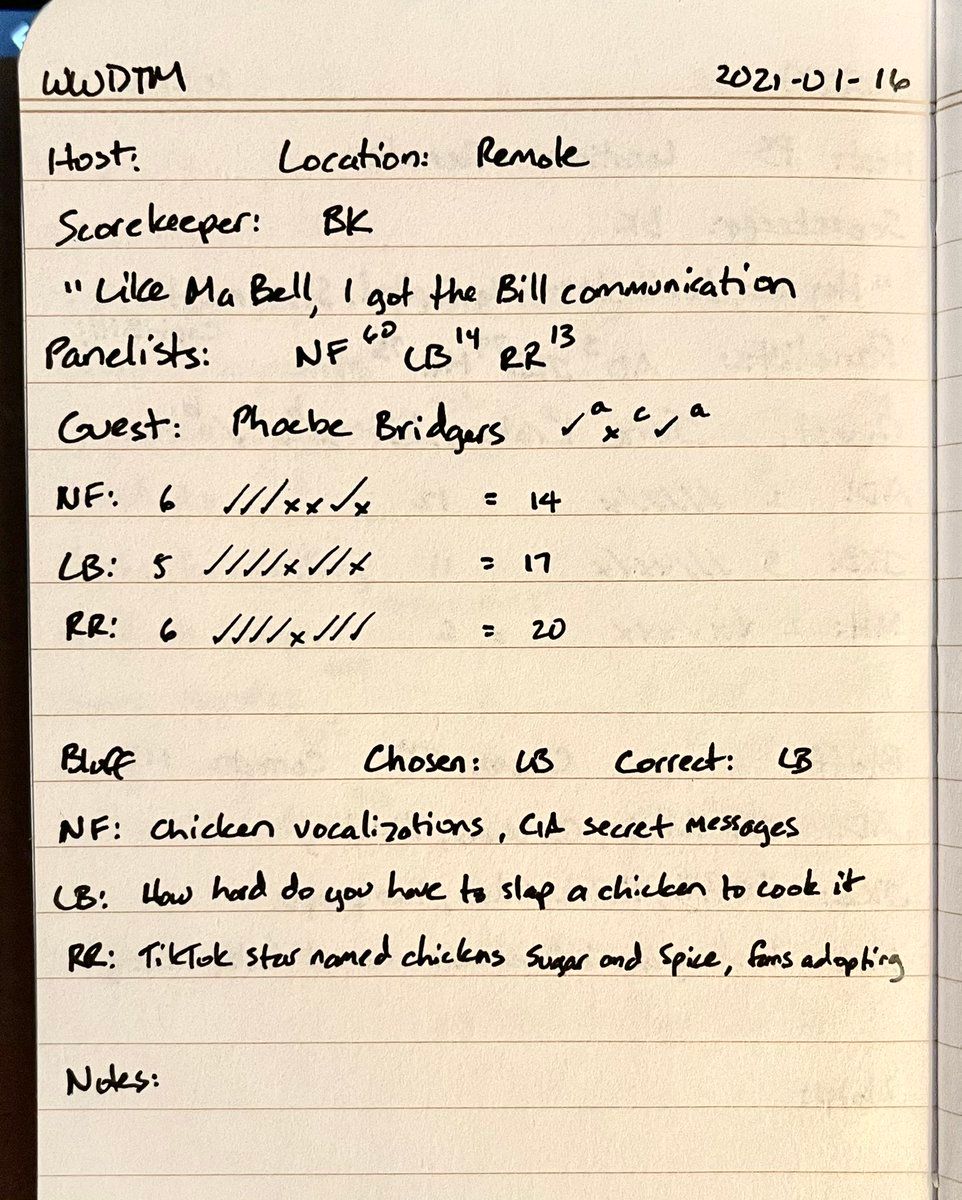 WWDTM 2021-01-16
Host: Location: Remote
Scorekeeper: BK
" Like Ma Bell, I got the Bill communication
Panelists: NF 60 LB 14 RR 13
Guest: Phoebe Bridgers ✓ a x c ✓ a
NF: 6 ///xx/x = 14
LB: 5 ////x//x = 17
RR: 6 ////x/// = 20
Bluff Chosen: LB Correct: LB
NF: Chicken vocalizations, CIA secret messages
LB: How hard do you have to slap a chicken to cook it
RR: TikTok star named chickens Sugar and Spice, fans adopting
Notes: